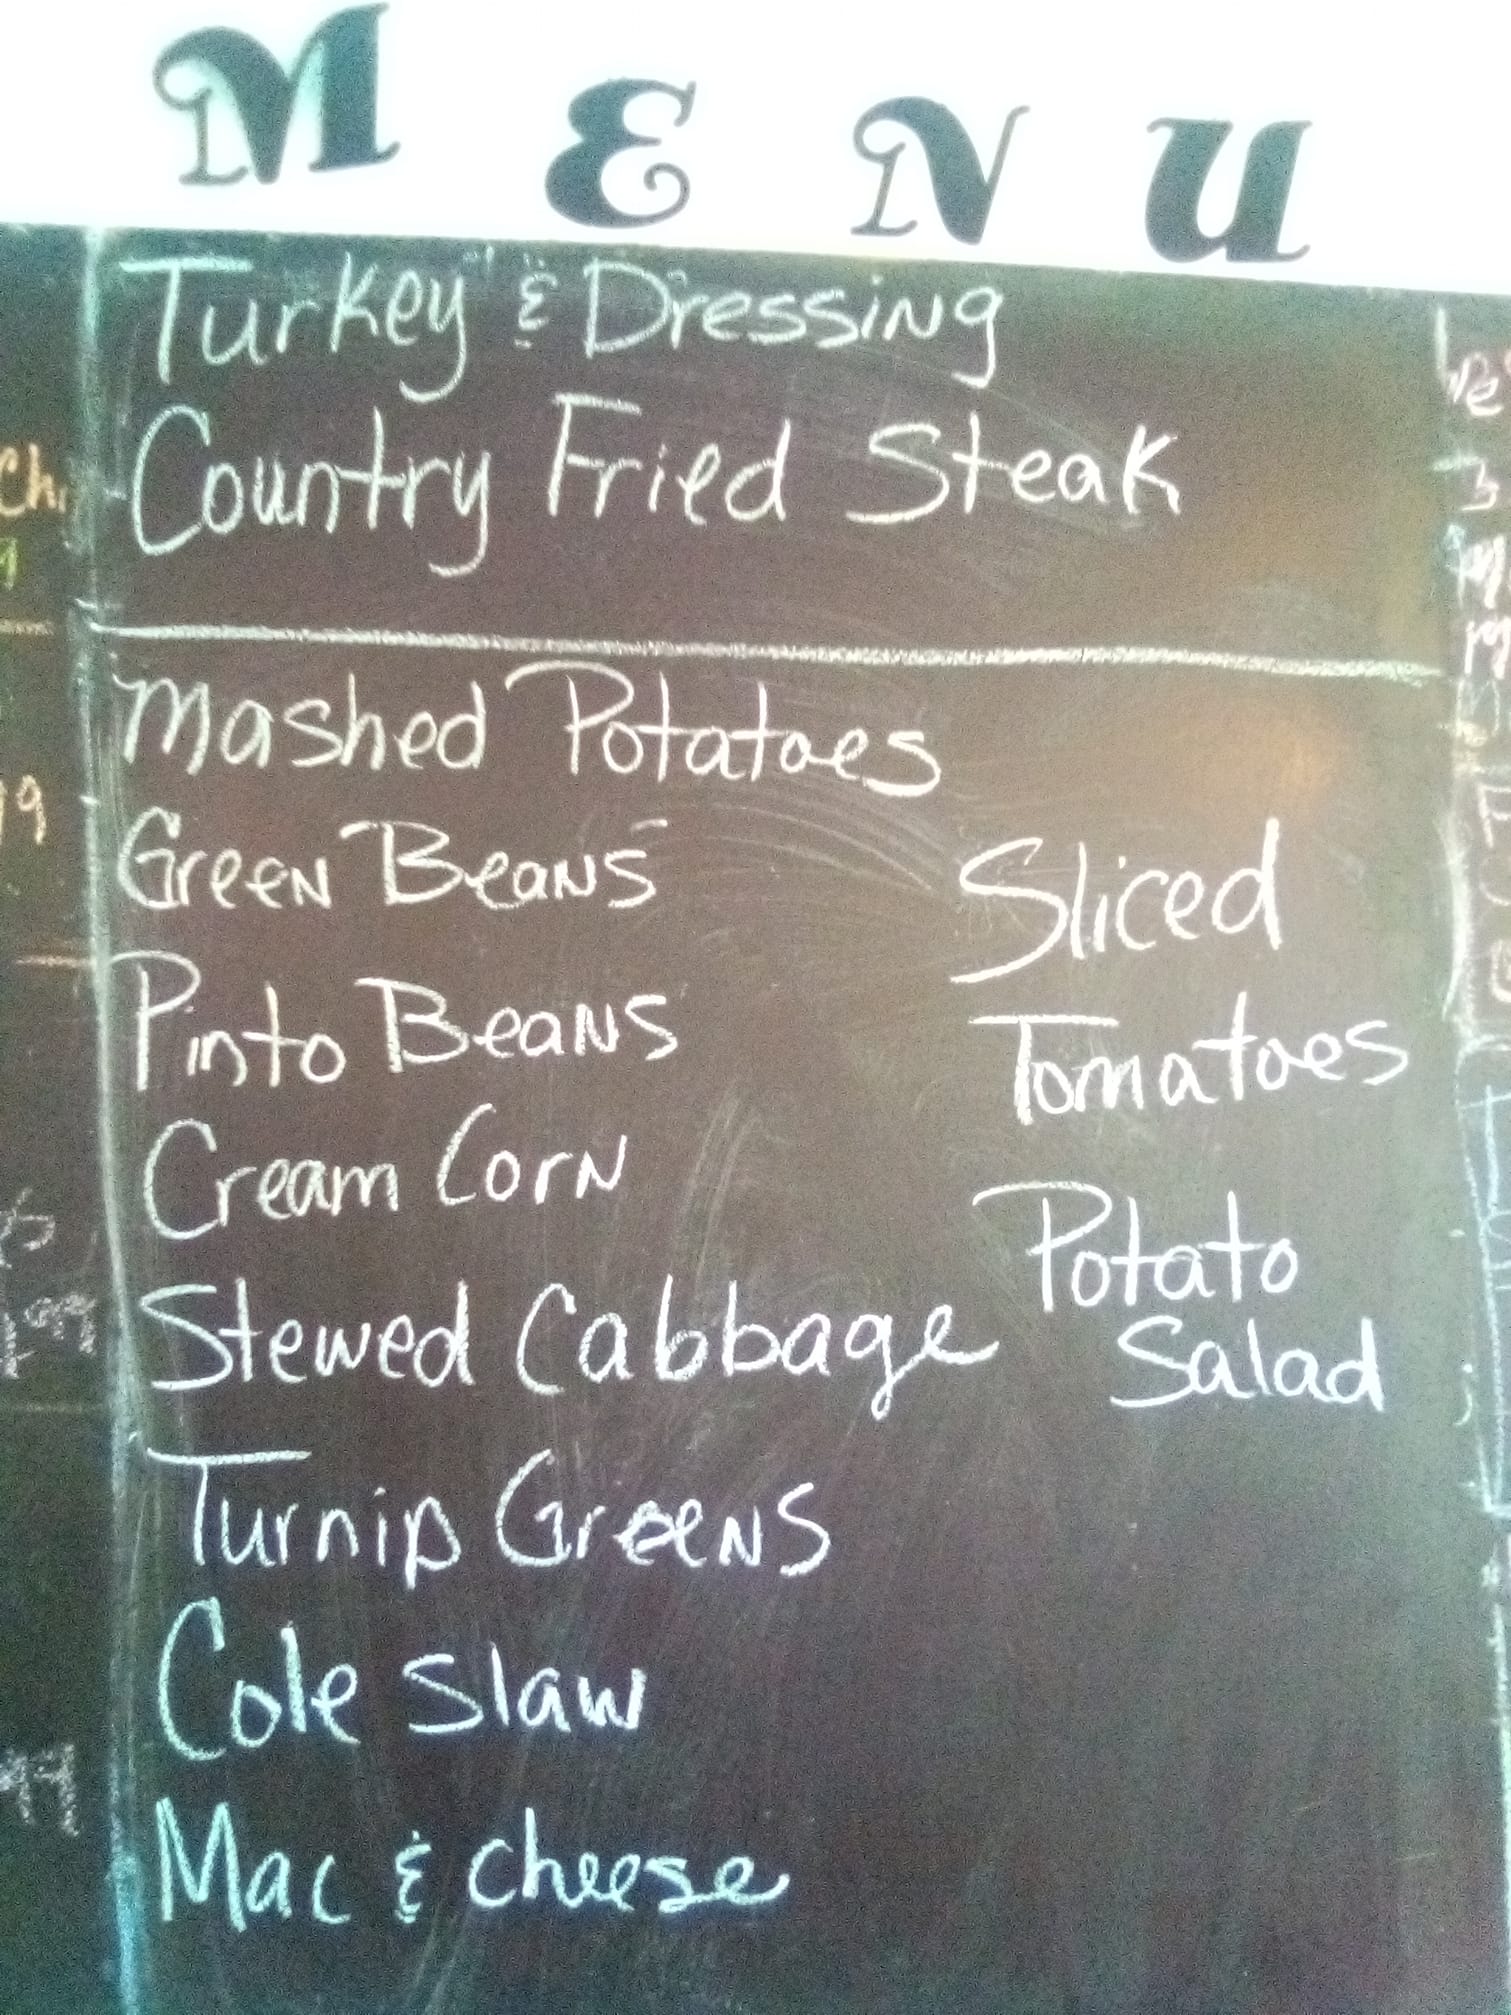 MENU
Turkey & Dressing
Country Fried Steak
Mashed Potatoes
Green Beans
Pinto Beans
Cream Corn
Stewed Cabbage
Turnip Greens
Cole Slaw
Mac & Cheese
Sliced
Tomatoes
Potato
Salad